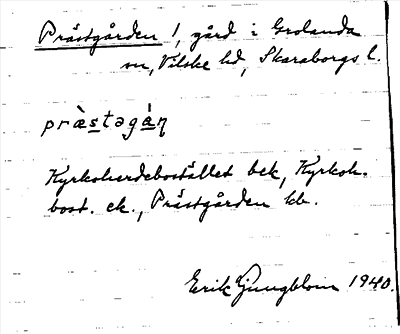 Prästgården 1, gård i Grolanda
sn, Vilske hd, Skaraborgs l.
præ̀stəgàṇ
Kyrkoherdebostället bek, Kyrkoh.
bost. ek., Prästgården kb.
Erik Ljungblom 1940.